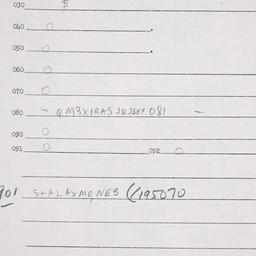 030 $
040 0 .
050 0 .
060 0
070 0
080 - QM3XIRAS JEJSEP 081 -
090 0
091 0 092 0
901 S+ALAXMONES (/195070